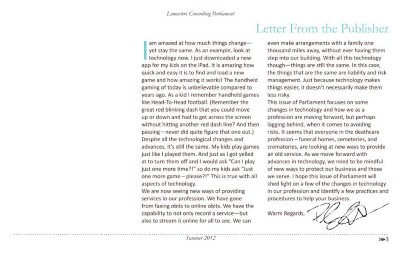 Lamasters Consulting Parliament
Letter From the Publisher
I am amazed at how much things change—
yet stay the same. As an example, look at
technology now. I just downloaded a new
app for my kids on the iPad. It is amazing how
quick and easy it is to find and load a new
game and how amazing it works! The handheld
gaming of today is unbelievable compared to
years ago. As a kid I remember handheld games
like Head-To-Head football. (Remember the
great red blinking dash that you could move
up or down and had to get across the screen
without hitting another red dash line? And then
passing—never did quite figure that one out.)
Despite all the technological changes and
advances, it's still the same. My kids play games
just like I played them. And just as I got yelled
at to turn them off and I would ask "Can I play
just one more time" so do my kids ask "Just
one more game – please?!" This is true with all
aspects of technology.
We are now seeing new ways of providing
services in our profession. We have gone
from faxing obits to online obits. We have the
capability to not only record a service—but
also to stream it online for all to see. We can
even make arrangements with a family one
thousand miles away, without ever having them
step into our building. With all this technology
though—things are still the same. In this case,
the things that are the same are liability and risk
management. Just because technology makes
things easier, it doesn't necessarily make them
less risky.
This issue of Parliament focuses on some
changes in technology and how we as a
profession are moving forward, but perhaps
lagging behind, when it comes to avoiding
risks. It seems that everyone in the deathcare
profession – funeral homes, cemeteries, and
crematories, are looking at new ways to provide
an old service. As we move forward with
advances in technology, we need to be mindful
of new ways to protect our business and those
we serve. I hope this issue of Parliament will
shed light on a few of the changes in technology
in our profession and identify a few practices and
procedures to help your business.
Warm Regards,
Summer 2012
3